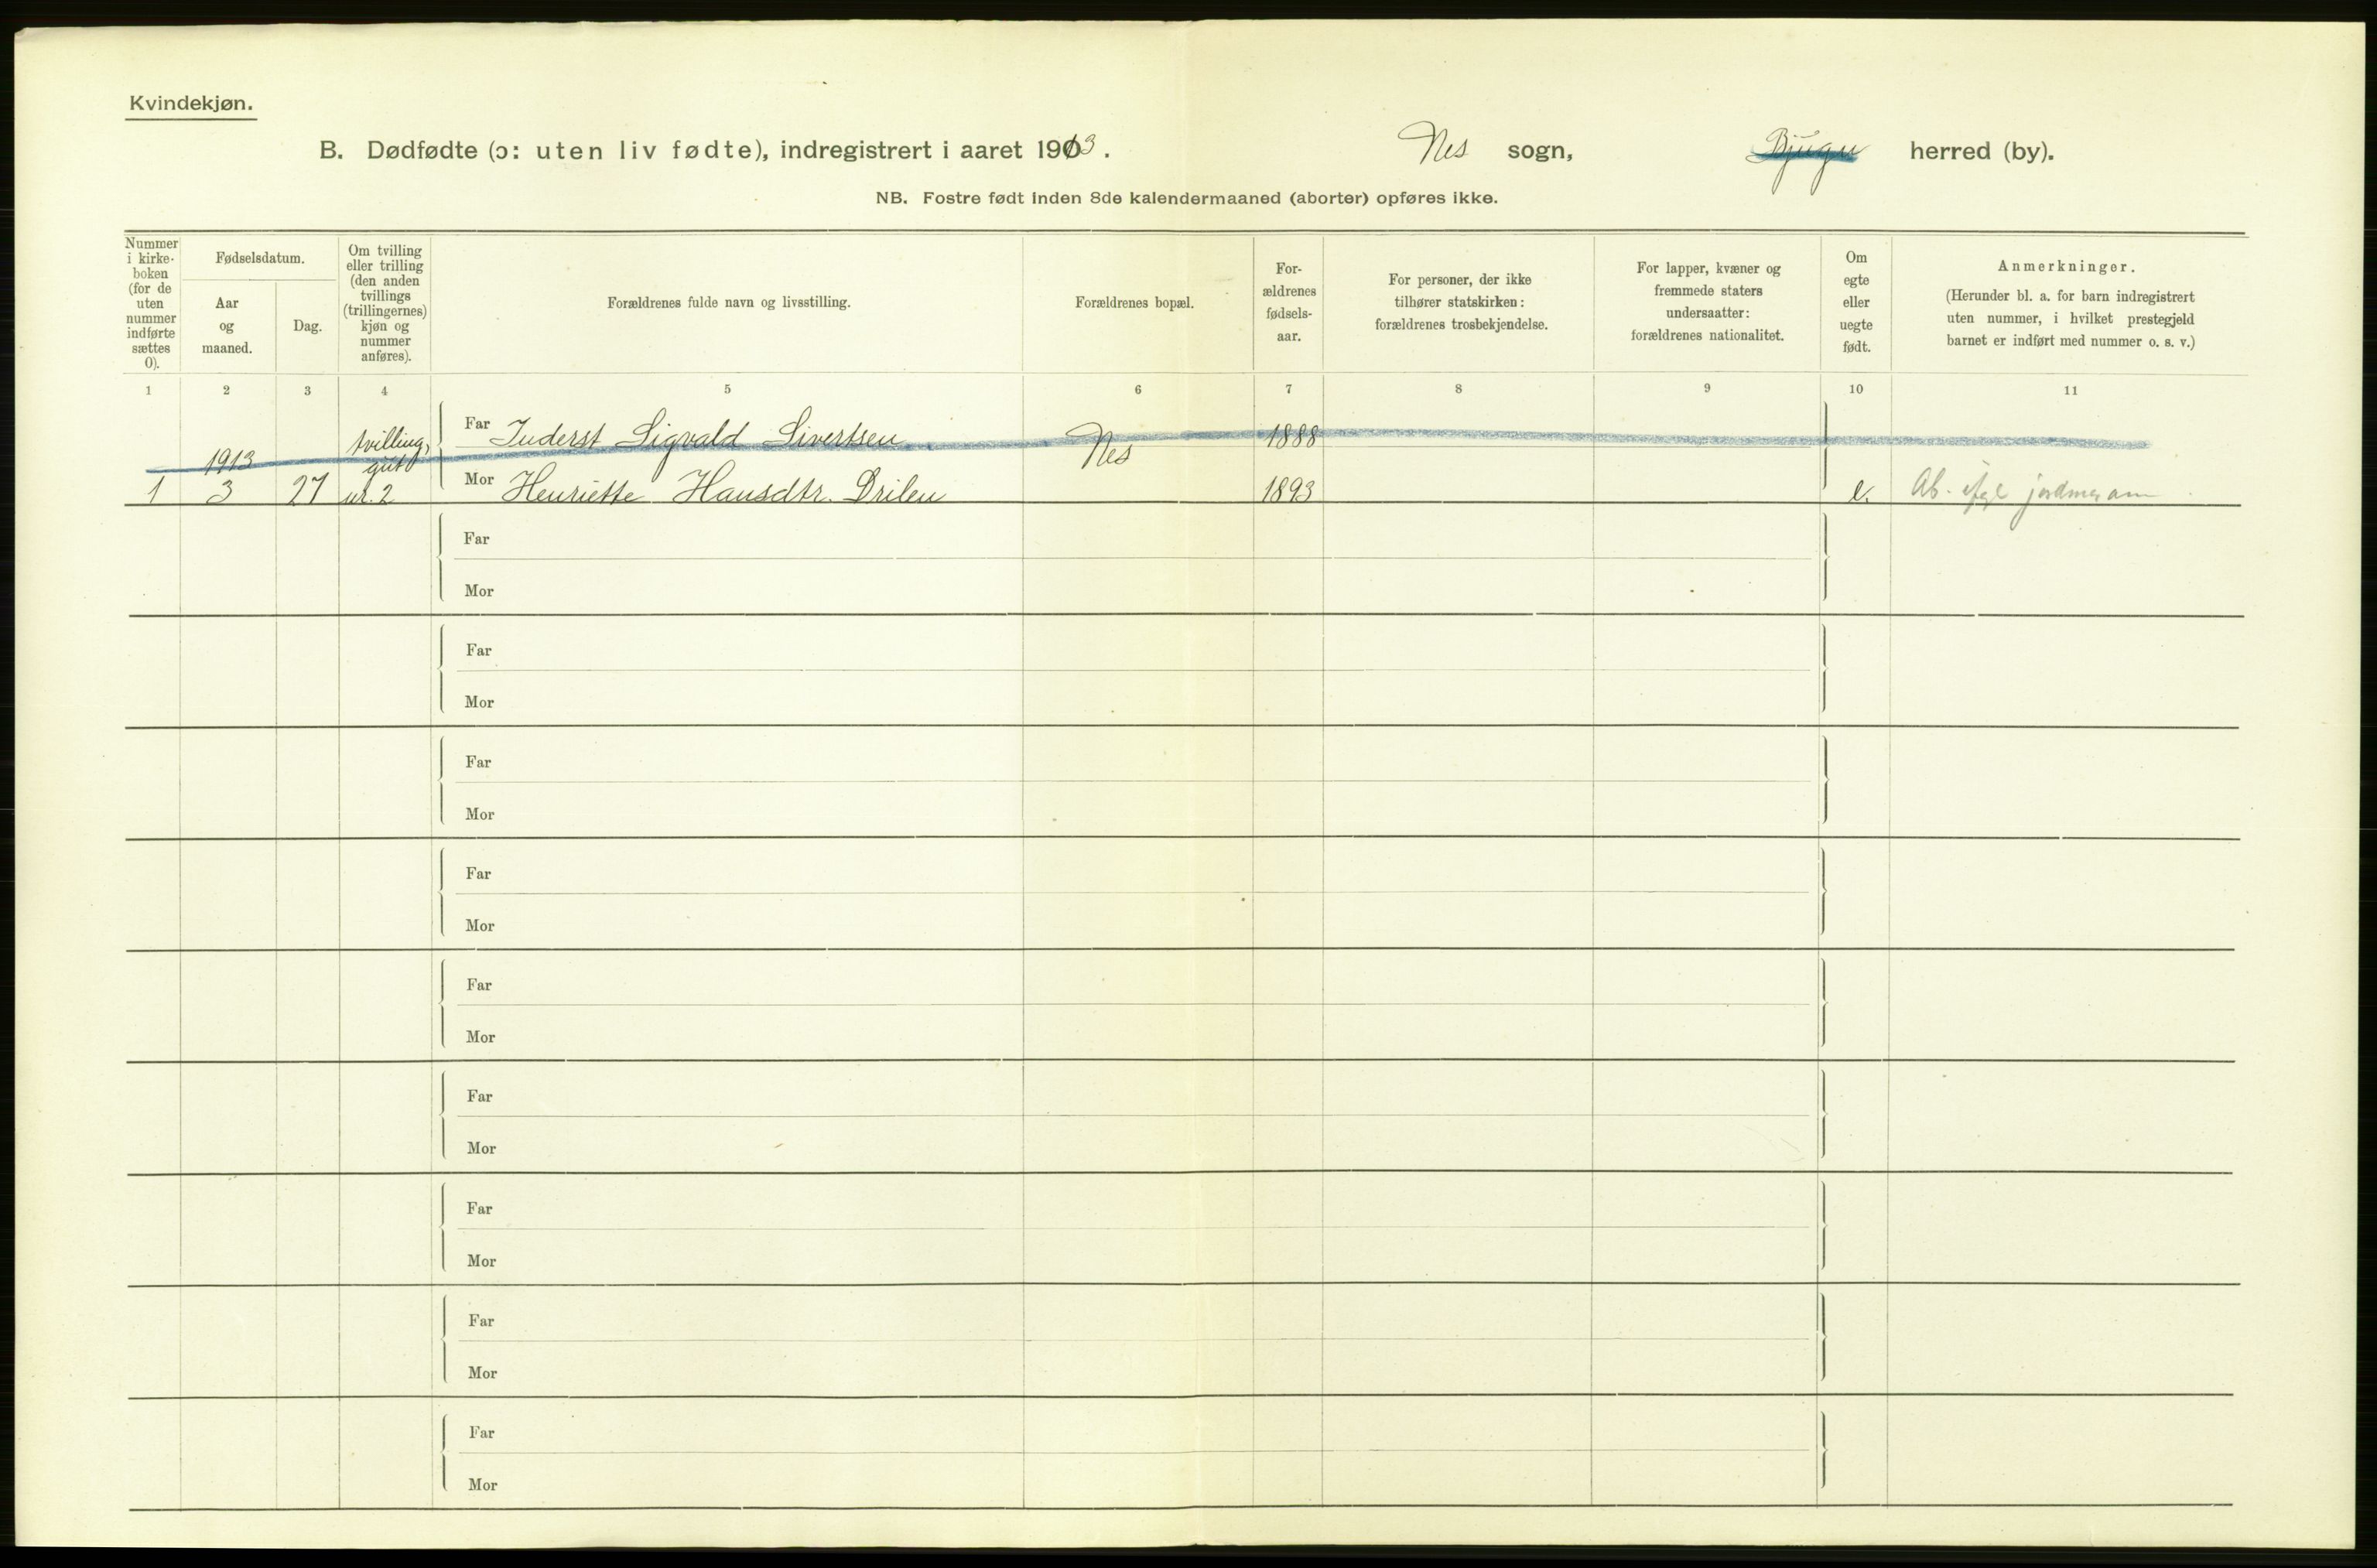 Kvindekjøn.
B. Dødfødte (ɔ: uten liv fødte), indregistrert i aaret 1913. Nes sogn, Bjugn herred (by).
NB. Fostre født inden 8de kalendermaaned (aborter) opføres ikke.
Nummer i kirke-boken (for de uten nummer indførte sættes 0).
Fødselsdatum.
Aar og maaned.
Dag.
Om tvilling eller trilling (den anden tvillings (trillingernes) kjøn og nummer anføres).
Forældrenes fulde navn og livsstilling.
Forældrenes bopæl.
For-ældrenes fødsels-aar.
For personer, der ikke tilhører statskirken: forældrenes trosbekjendelse.
For lapper, kvæner og fremmede staters undersaatter: forældrenes nationalitet.
Om egte eller uegte født.
Anmerkninger.
(Herunder bl. a. for barn indregistrert uten nummer, i hvilket prestegjeld barnet er indført med nummer o. s. v.)
1 2 3 4 5 6 7 8 9 10 11
tvilling, Far Inderst Sigvald Sivertsen 1888
1913 gut Nes
1 3 27 nr. 2 Mor Henriette Hansdtr. 1893 e. Ab.
Far
Mor
Far
Mor
Far
Mor
Far
Mor
Far
Mor
Far
Mor
Far
Mor
Far
Mor
Far
Mor